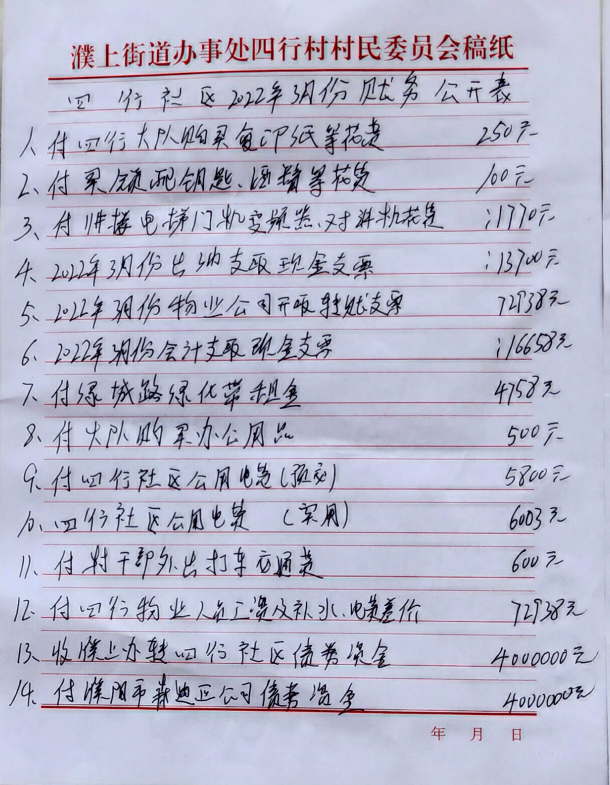 濮上街道办事处四行村村民委员会稿纸
四行社区2022年3月份财务公开表
1、付四行大队购买复印纸等花费 250元
2、付买锁配钥匙、酒精等花费 100元
3、付焊接电梯门机变频器、对讲机花费 :1770元
4、2022年3月份出纳支取现金支票 :13700元
5、2022年3月份物业公司开取转账支票 72938元
6、2022年3月份会计支取现金支票 :16658元
7、付绿城路绿化带租金 4758元
8、付大队购买办公用品 500元
9、付四行社区公用电费(预交) 5800元
10、四行社区公用电费 (实用) 6003元
11、付村干部外出打车交通费 600元
12、付四行物业人员工资及补水、电费差价 72938元
13、收濮上办转四行社区债券资金 4000000元
14、付濮阳市森迪公司债券资金 4000000元
年 月 日